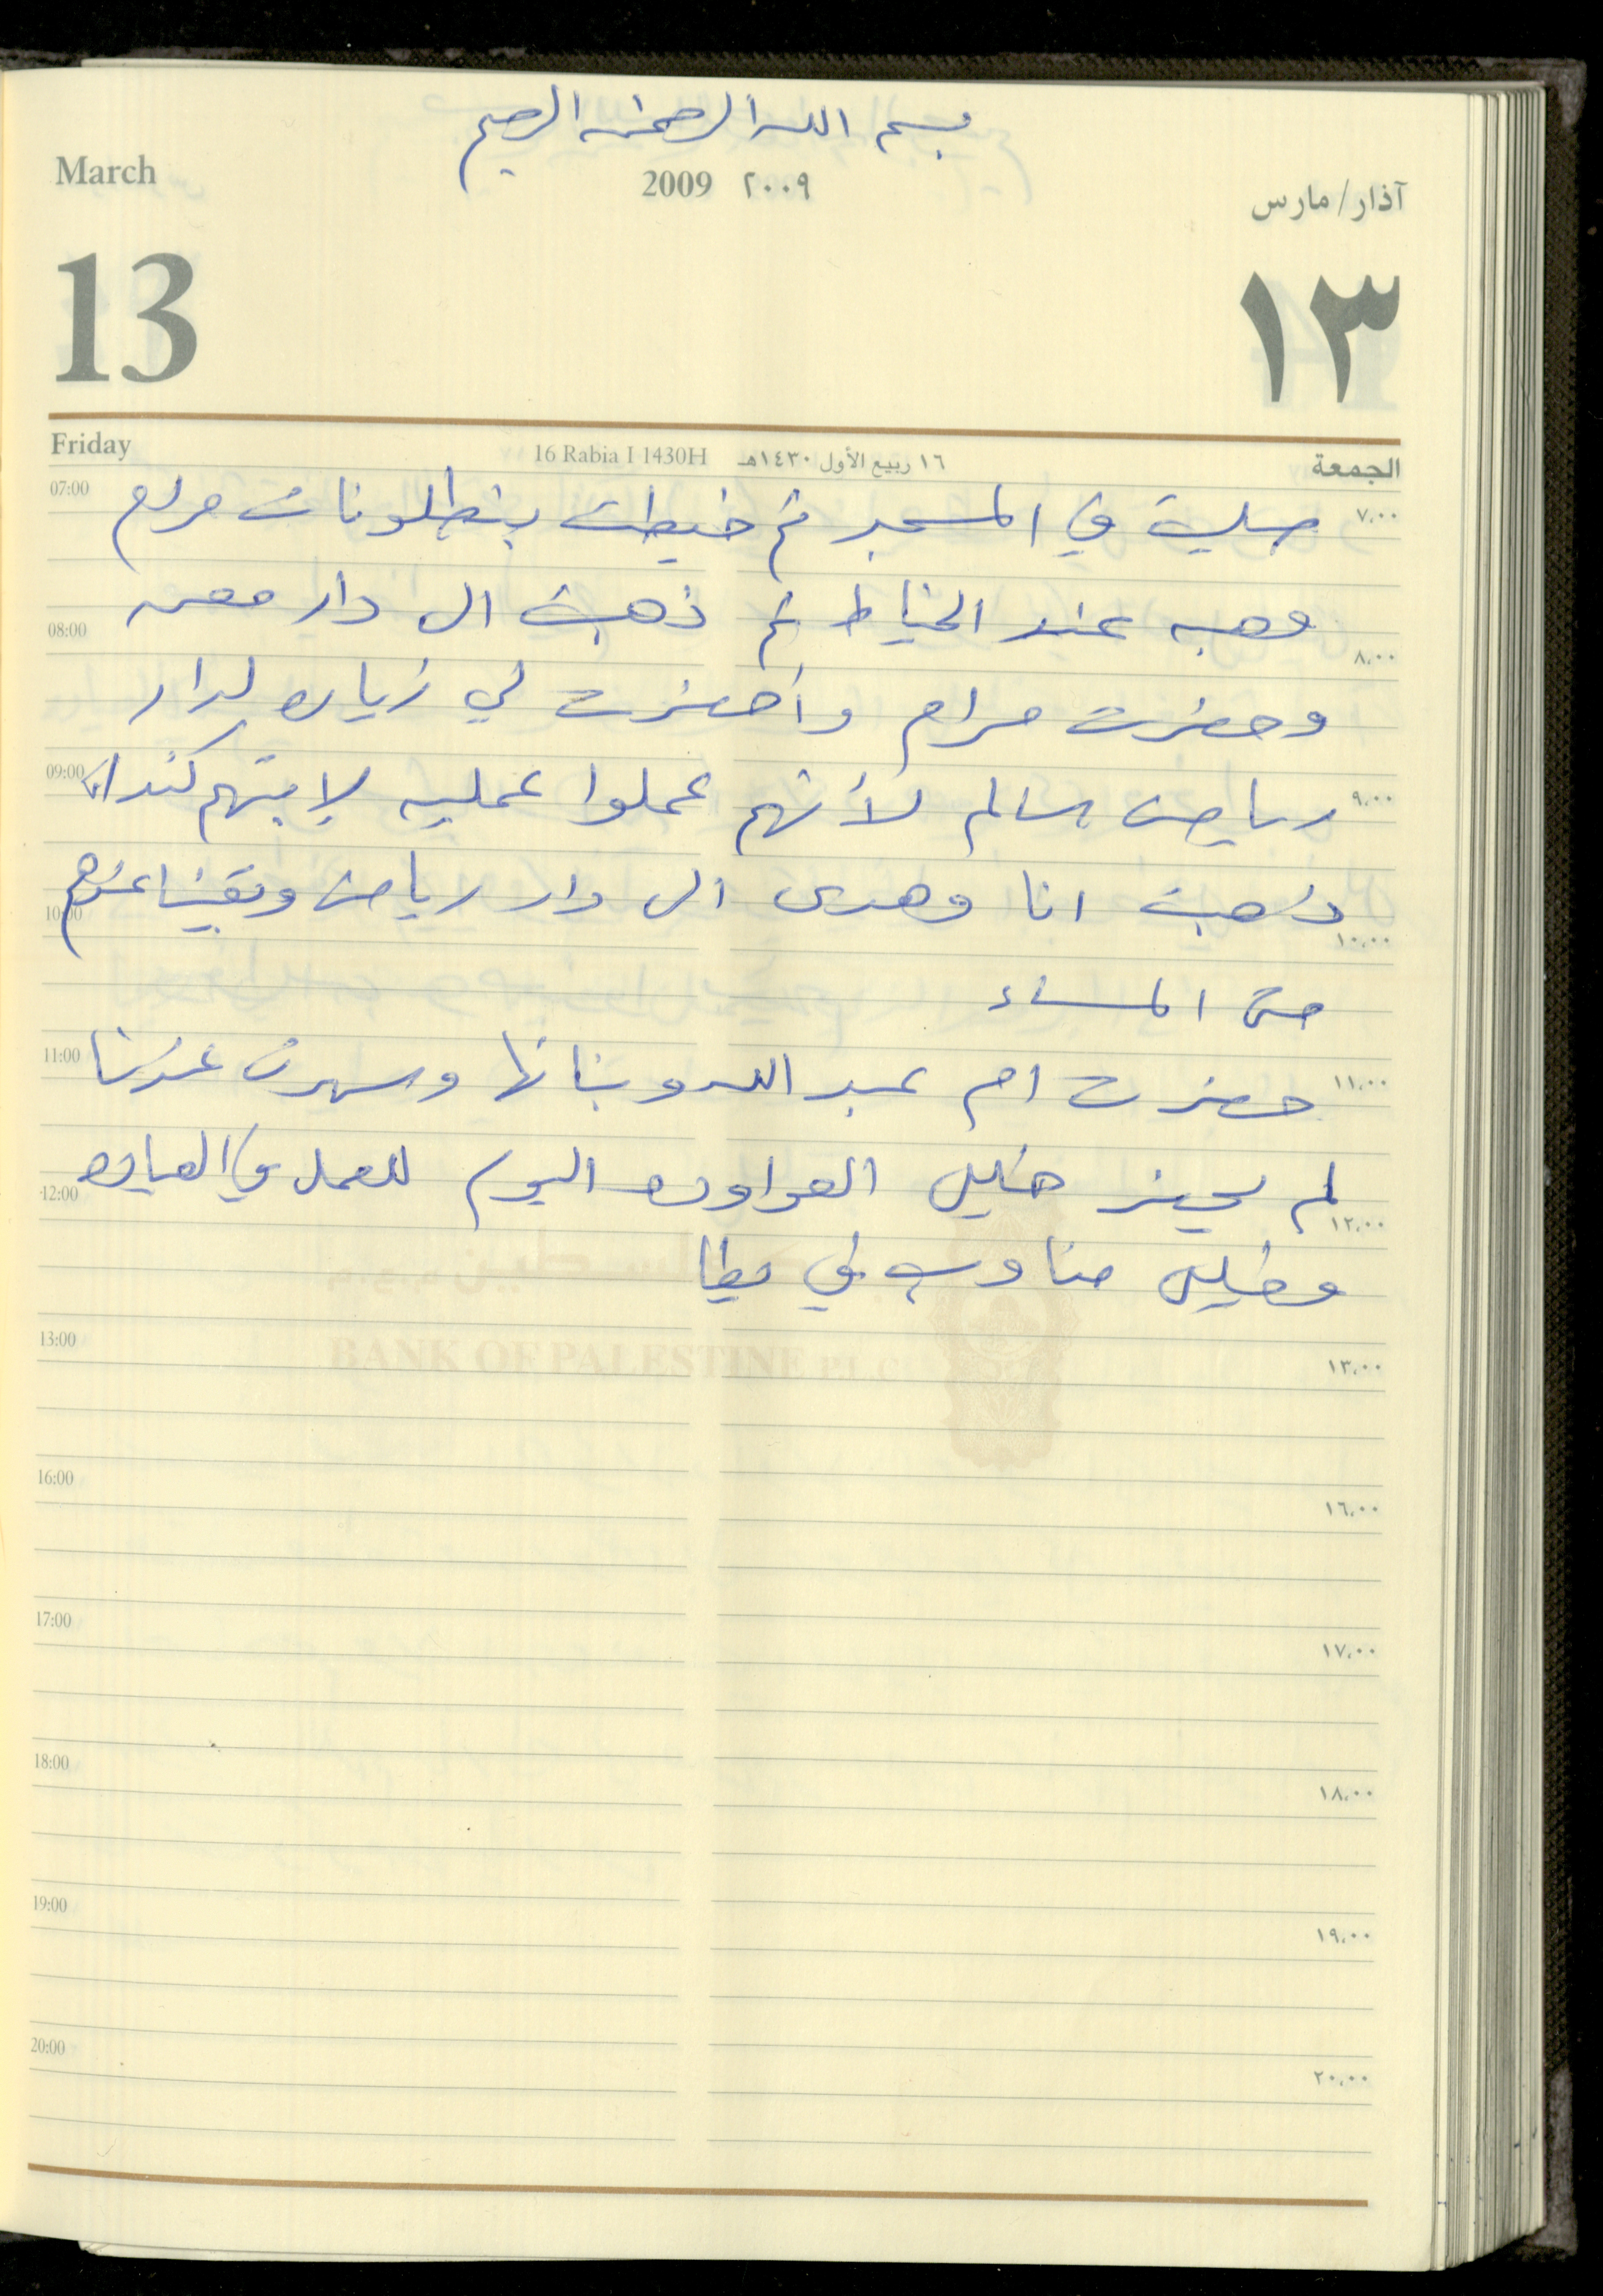 بسم الله الرحمن الرحيم
March 2009 ٢٠٠٩ آذار/مارس
13 ١٣
Friday 16 Rabia I 1430H ١٦ ربيع الأول ١٤٣٠هـ الجمعة
07:00 صليت في المسجد ثم خيطت بنطلونات مرام ٧,٠٠
وهبه عند الخياط ثم ذهبت الى دار معن
08:00 ٨,٠٠
وحضرت مرام واحضرت لي زياره لدار
09:00 رياض سالم لأنهم عملوا عمليه لابنهم ٩,٠٠
ذهبت انا وهدى الى دار رياض وبقينا عندهم
10:00 ١٠,٠٠
حتى المساء
11:00 حضرت ام عبد الله وبناتها وسهرن عندنا ١١,٠٠
لم يحضر خليل العواوده اليوم للعمل في العياده
12:00 ١٢,٠٠
وخليل مناوب في يطا
13:00 ١٣,٠٠
BANK OF PALESTINE P.L.C
16:00 ١٦,٠٠
17:00 ١٧,٠٠
18:00 ١٨,٠٠
19:00 ١٩,٠٠
20:00 ٢٠,٠٠